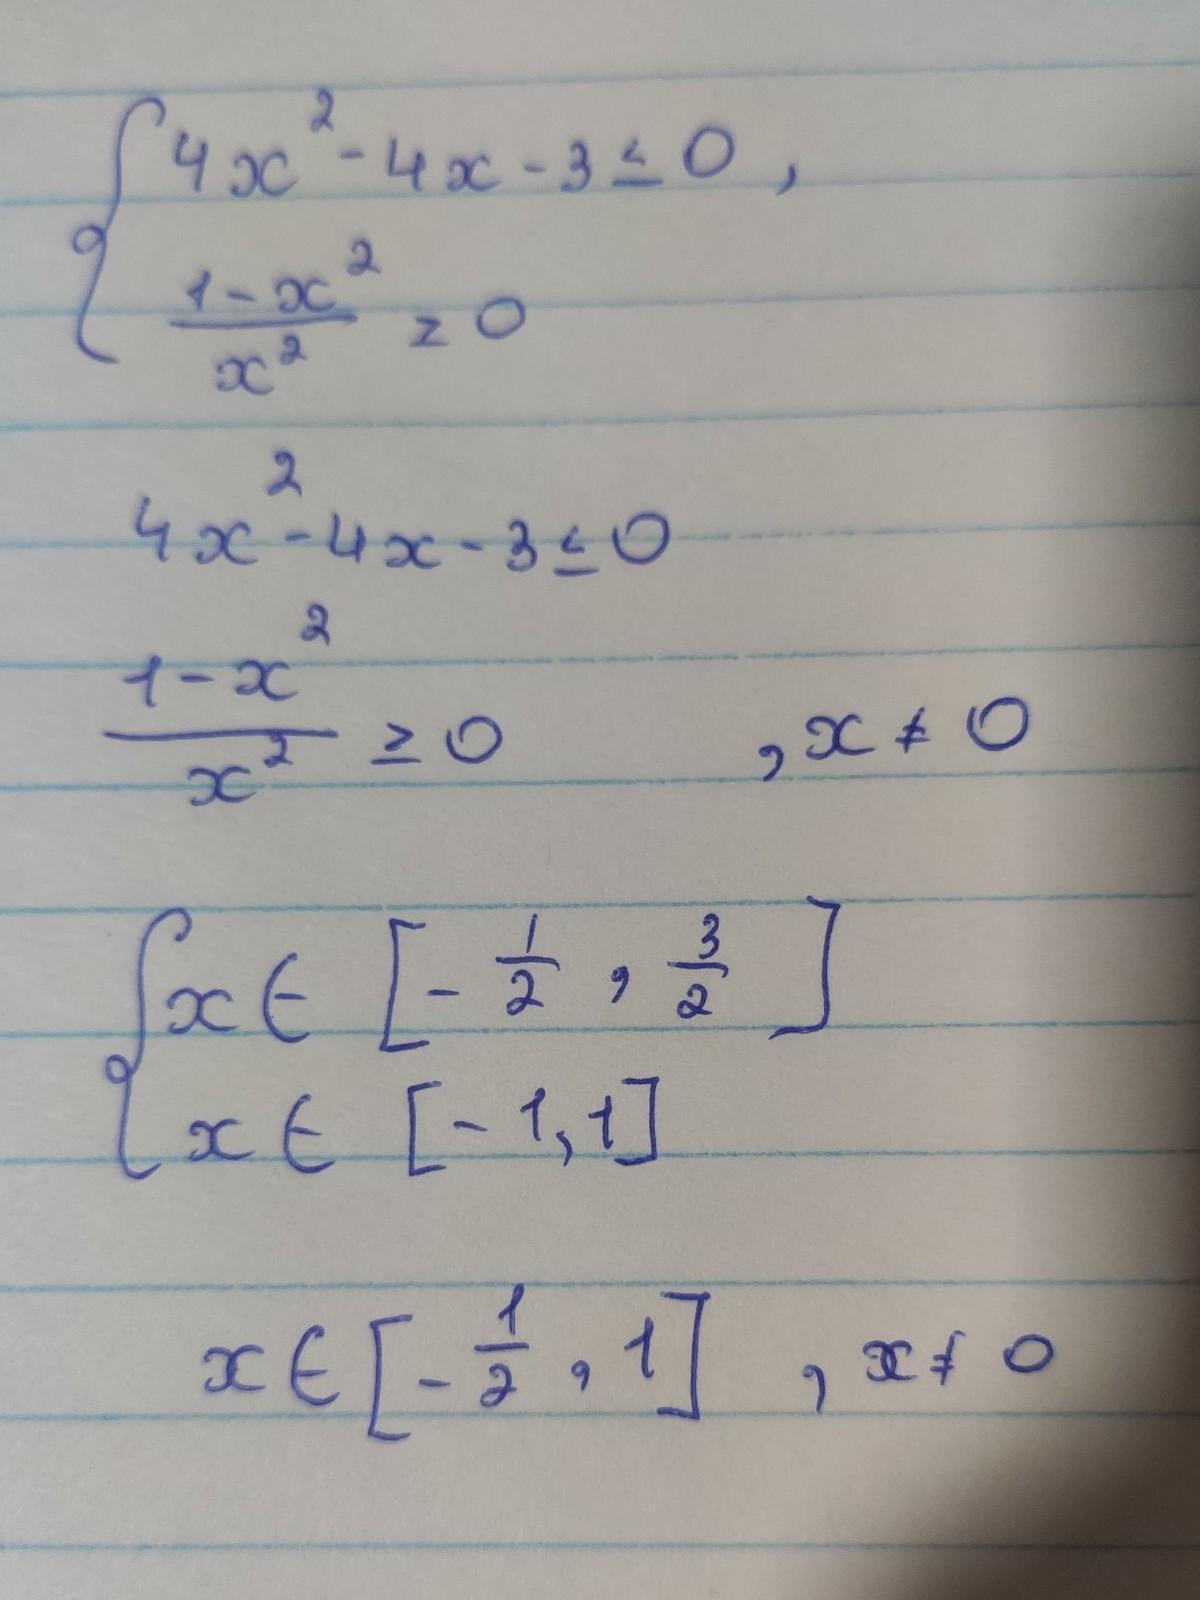 { 4x² - 4x - 3 ≤ 0 ,
(1 - x²)/x² ≥ 0
4x² - 4x - 3 ≤ 0
(1 - x²)/x² ≥ 0 , x ≠ 0
{ x ∈ [-1/2 , 3/2]
x ∈ [-1, 1]
x ∈ [-1/2 , 1] , x ≠ 0